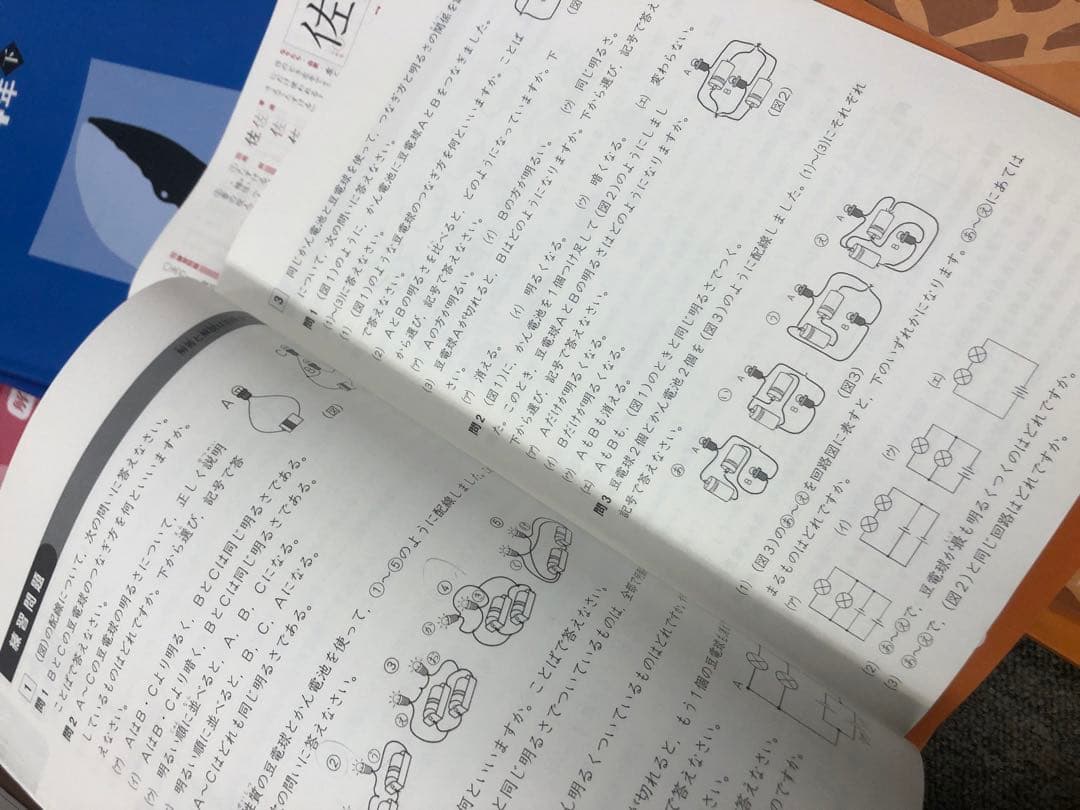 練習問題
1
(図)の配線について,次の問いに答えなさい。
問1 BとCの豆電球のつなぎ方を何といいますか。
ことばで答えなさい。
問2 A～Cの豆電球の明るさについて,正しく説明
しているものはどれですか。下から選び,記号で答
えなさい。
(ア) AはB・Cより明るく,BとCは同じ明るさである。
(イ) AはB・Cより暗く,BとCは同じ明るさである。
(ウ) 明るい順に並べると,A,B,Cになる。
明るい順に並べると,B,C,Aになる。
A～Cはどれも同じ明るさである。
A
C
(図)
の豆電球とかん電池を使って,①～⑤のように配線しました。
の問いに答えなさい。
②
③
④
⑤
何といいますか。ことばで答えなさい。
と同じ明るさでついているものは,全部で何個
も明るくついているものはどれですか。
切れると,もう1個の豆電球も消え
で答えなさい。
答えなさい。
のですか。
A
佐
佐
3
同じかん電池と豆電球を使って,つなぎ方と明るさの関係を
について,次の問いに答えなさい。
問1 (図1)のように,かん電池に豆電球AとBをつなぎました。
(1)～(3)に答えなさい。
(1) (図1)のような豆電球のつなぎ方を何といいますか。ことば
で答えなさい。
(2) AとBの明るさを比べると,どのようになっていますか。下
から選び,記号で答えなさい。
(ア) Aの方が明るい。 (イ) Bの方が明るい。 (ウ) 同じ明るさ。
(3) 豆電球Aが切れると,Bはどのようになりますか。下から選び,記号で答え
なさい。
(ア) 消える。 (イ) 明るくなる。 (ウ) 暗くなる。 (エ) 変わらない。
問2 (図1)に,かん電池を1個つけ足して(図2)のようにしまし
た。このとき,豆電球AとBの明るさはどのようになりますか。
下から選び,記号で答えなさい。
(ア) Aだけが明るくなる。
(イ) Bだけが明るくなる。
(ウ) AもBも消える。
(エ) AもBも,(図1)のときと同じ明るさでつく。
A
B
(図2)
問3 豆電球2個とかん電池2個を(図3)のように配線しました。(1)～(3)にそれぞれ
記号で答えなさい。
あ
い
う
え
A
B
A
B
A
B
A
B
(図3)
(1) (図3)のあ～えを回路図に表すと,下のいずれかになります。あ～えにあては
まるものはどれですか。
(ア)
(イ)
(ウ)
(エ)
(2) あ～えで,豆電球が最も明るくつくのはどれですか。
(3) あ～えで,(図2)と同じ回路はどれですか。